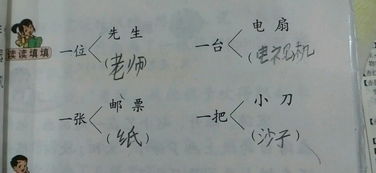 读读填填
先生
一位
(老师)
电扇
一台
(电视机)
邮票
一张
(纸)
小刀
一把
(沙子)